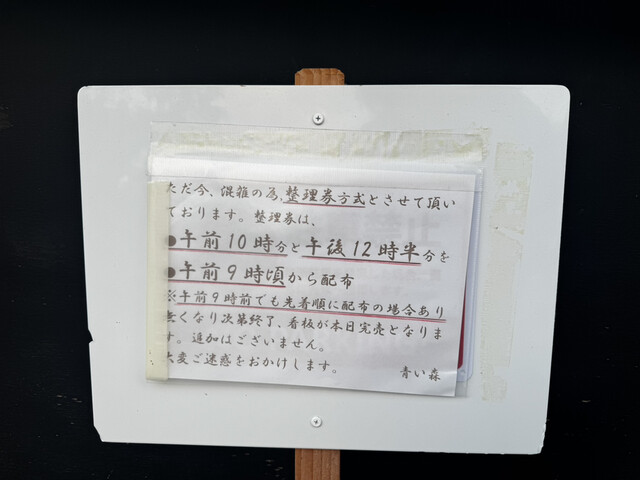 ただ今、混雑の為、整理券方式とさせて頂い
ております。整理券は、
●午前10時分と午後12時半分を
●午前9時頃から配布
※午前9時前でも先着順に配布の場合あり
無くなり次第終了、看板が本日完売となりま
す。追加はございません。
大変ご迷惑をおかけします。
青い森